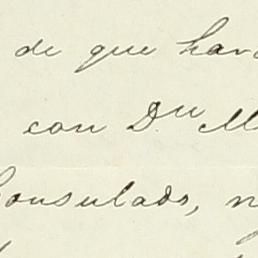 de que hara
con Dn M
Consulado, n